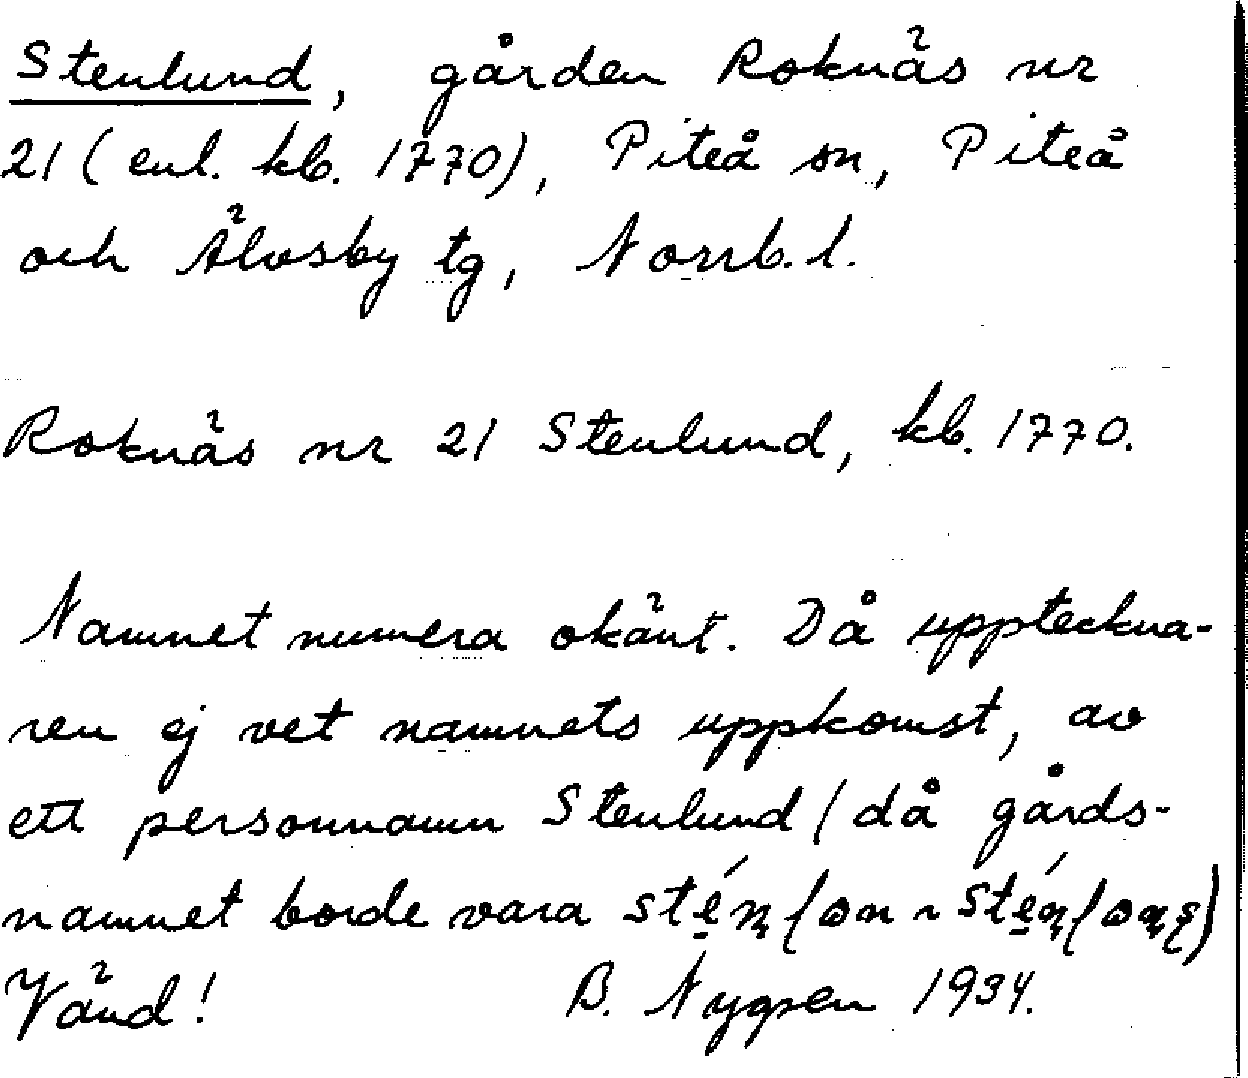 Stenlund, gården Roknäs nr
21 (enl. kb. 1770), Piteå sn, Piteå
och Älvsby tg, Norrb. l.
Roknäs nr 21 Stenlund, kb. 1770.
Namnet numera okänt. Då uppteckna-
ren ej vet namnets uppkomst, av
ett personnamn Stenlund (då gårds-
namnet borde vara
Vänd! B. Nygren 1934.